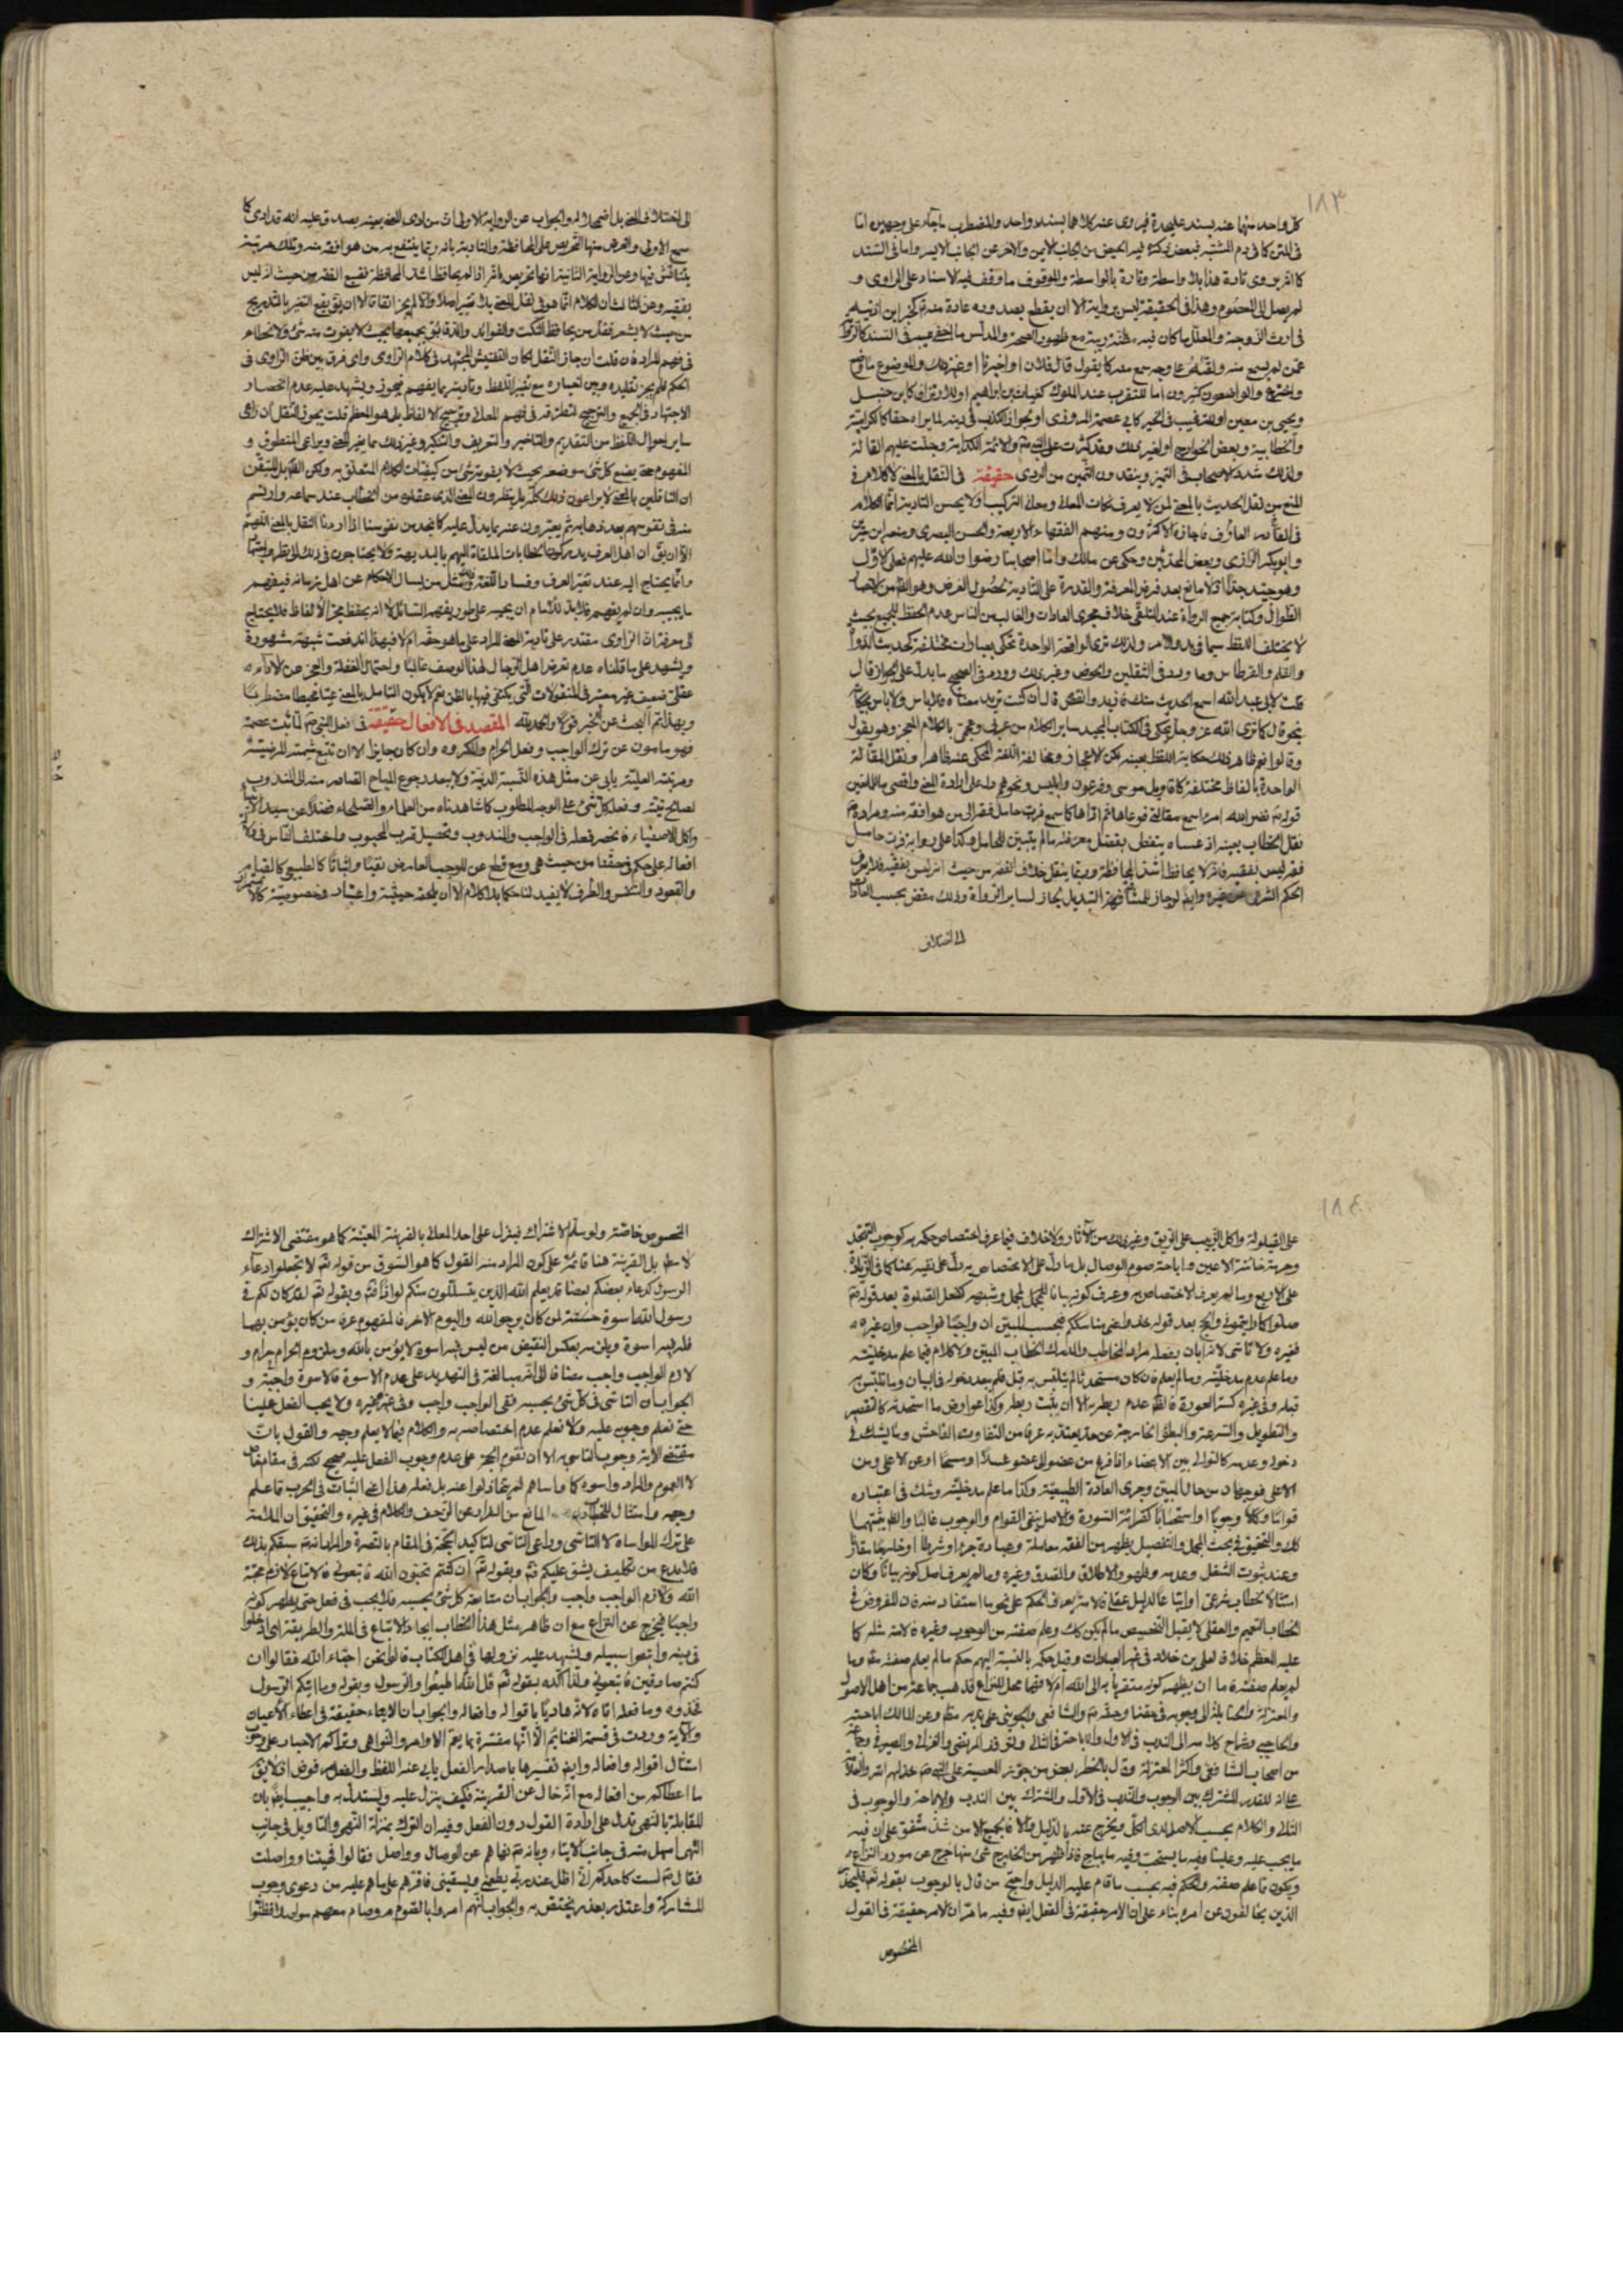 ١٨٣
كل واحد منهما عنه بسند عليحدة فيروى عنه كلاهما بسند واحد والمضطرب ما جاء على وجهين اما
فى المتن كما فى دم المشتبه فبعض يذكر فيه الحيض من الجانب الايمن والاخر عن الجانب الايسر واما فى السند
كان يروى تارة هذا بلا واسطة وتارة بالواسطة والموقوف ما وقف فيه الاسناد على الراوى و
لم يصل الى المعصوم وهذا فى الحقيقة ليس برواية الا ان يقطع بصدوره عادة منه كخبر ابن اذينه
فى ارث الزوجة والمعلل ما كان فيه مظنة ريبة مع ظهور الصحة والمدلس ما اخفى عيبه فى السند كالرواية
عمن لم يسمع منه ولقيه على وجه سمع منه كان يقول قال فلان او اخبرنا او غير ذلك والموضوع ما وضع
واخترع والواضعون كثيرون اما للتقرب عند الملوك كغياث بن ابراهيم او للارتزاق كابن حنبل
ويحيى بن معين او للترغيب فى الخير كابى عصمة المروزى او لجواز الكذب فى دينه لما يراه حقا كالكرامية
والخطابية وبعض الخوارج او لغير ذلك وقد كثرت على النبى ص والائمة الكذابة وجلت عليهم القالة
ولذلك شدد الاصحاب فى التميز وينقدون الثمين من الردى حقيقة فى النقل بالمعنى لا كلام فى
المنع من نقل الحديث بالمعنى لمن لا يعرف نكات المعانى ومعانى التركيب ولا يحسن التادية انما الكلام
فى القادر العارف فاجازه الاكثرون ومنهم الفقهاء الاربعة والحسن البصرى ومنعه ابن سيرين
وابو بكر الرازى وبعض المحدثين وحكى عن مالك واما اصحابنا رضوان الله عليهم فعلى الاول
وهو جيد جدا اذ لا مانع بعد فرض المعرفة والقدرة على التادية لحصول الغرض وهو القاء من الاخبار
الطوال وكتابة جميع الرواة عند التلقى خلاف مجرى العادات والغالب من الناس عدم الحفظ للجميع بحيث
لا يختلف اللفظ سيما فى بدو الامر ولذلك ترى الواقعة الواحدة تحكى بعبارات مختلفة كحديث الدواة
والقلم والقرطاس وما ورد فى الثقلين والحوض وغير ذلك وورد فى الصحيح ما يدل على الجواز قال
قلت لابى عبد الله اسمع الحديث منك فازيد وانقص قال ان كنت تريد معناه فلا باس ولا باس
نحو قال كما ترى الله عز وجل يحكى فى الكتاب المجيد ساير الكلام من عربى وعجمى بالكلام المعجز وهو يقول
وقالوا فهو ظاهر ذلك حكاية اللفظ بعينه لكن الاعجاز ومخالفة اللغة المحكى عنه ظاهرا ونقل المقالة
الواحدة بالفاظ مختلفة كاقاويل موسى وفرعون وابليس ونحوهم دل على ارادة المعنى واقصى ما للمانعين
قوله ص نضر الله امرء اسمع مقالتى فوعاها ثم اداها كما سمع فرب حامل فقه الى من هو افقه منه ومراده ص
نقل الخطاب بعينه اذ عساه يتفطن بفضل معرفته ما لم يتبين للحامل وكذا على رواية فرب حامل
فقه ليس بفقيه فانه اذ لا يحافظ اشد المحافظة وربما ينقل خلاف الفقه من حيث انه ليس بفقيه فلا يعرف
الحكم الشرعى من غيره وايضا لو جاز للمشافهة التبديل لجاز لساير الرواة وذلك مفض بحسب العادة
الى اختلاف
الى اختلاف المعنى بل اضمحلاله والجواب عن الرواية الاولى ان من ادى المعنى بعينه يصدق عليه انه قد ادى كما
سمع الاولى والغرض منها التحريص على المحافظة والتادية بانه ربما ينتفع به من هو افقه منه وتلك مرتبة
يتنافس فيها وعن الرواية الثانية انها تحريص بامر اذ لم يحافظ اشد المحافظة تضيع الفقه من حيث انه ليس
بفقيه وعن الثالث ان الكلام انما هو فى نقل المعنى بلا تغير اصلا والا لم يجز اتفاقا الا ان يق يقع التغير بالتدريج
من حيث لا يشعر فقل من يحافظ النكت والفوائد والدقايق بجميعها بحيث لا يفوت منه شئ ولا انحطام
فى فهم المراد فان قلت ان جاز النقل لكان التفتيش للمجتهد فى كلام الراوى واى فرق بين ظن الراوى فى
الحكم فلم يجز تقليده وبين اخباره مع تغير اللفظ وتاديته بما يفهم فيجوز ويشهد عليه عدم انحصار
الاجتهاد فى الجمع والترجيح لتعلقه فى فهم المعانى وترجيح الالفاظ بل هو المعظم قلت يجوز النقل ان راعى
ساير احوال اللفظ من التقديم والتاخير والتعريف والتنكير وغير ذلك مما يغير المعنى ويراعى المنطوق و
المفهوم حتى يضع كل شئ موضعه بحيث لا يفوته شئ من كيفيات الكلام المتعلق به ولكن القابل للتيقن
ان الناقلين بالمعنى لا يراعون ذلك كله بل ينظرون المعنى الذى عقلوه من الخطاب عند سماعه وارتسم
منه فى نفوسهم بعد ذهابه ثم يعبرون عنه بما يدل عليه كما نجد من نفوسنا اذا اردنا النقل بالمعنى اللهم
الا ان يق ان اهل العرف يدركون الخطابات الملقاة اليهم بالبديهة ولا يحتاجون فى ذلك الى نظر واجتهاد
وانما يحتاج اليه عند تغير العرف وفساد اللغة ومثل من يسال الاحكام عن اهل زمانه فيفهم
ما يجيبه وان لم يفهم فلا بد للامام ان يجيبه على طور يفهمه السائل لا انه يحفظ مجرد الالفاظ فلا يحتاج
الى معرفة ان الراوى مقتدر على تادية المعنى المراد على ما هو حقه ام لا فبهذا اندفعت شبهة مشهورة
ويشهد على ما قلناه عدم تعرض اهل الرجال لهذا الوصف غالبا واحتمال الغفلة والعجز عن الاداء
عقلى ضعيف غير معتبر فى المنقولات التى يكتفى فيها بالظن نعم لا يكون الناقل بالمعنى غبيا مخبطا مضطربا
وبهذا تم البحث عن الخبر قولا والحمد لله المقصد فى الافعال حقيقة فى فعل النبى ص لما ثبت عصمته
فهو مامون عن ترك الواجب وفعل الحرام والمكروه وان كان جايزا الا ان تتبع شيمته المرضية
ومرتبته العلية يابى عن مثل هذه النسبة الدنية ولا يبعد رجوع المباح القاصر منه الى المندوب
لصالح نيته وفعل كل شئ على الوجه المطلوب كما شاهدناه من العلماء والصلحاء فضلا عن سيد الانبياء
واكمل الاصفياء فانحصر فعله فى الواجب والمندوب وتحصيل قرب المحبوب واختلف الناس فى دلالة
افعاله على حكم فى حقنا من حيث هى ومع قطع عن الموجب العارض نفيا واثباتا كالطبيعى كالقيام
والقعود والتنفس والطرف لا يفيد لنا حكما بلا كلام الا ان يلحقه حيثية واعتبار وخصوصية كالاستمرار
١٨٤
على القيلولة واكل الزبيب على الريق وغير ذلك من الآثار ولا خلاف فيما عرف اختصاص حكمه به كوجوب التهجد
وحرمة خائنة الاعين واباحة صوم الوصال بل ما دل على الاختصاص به دل على نفيه عنا كما فى الزيادة
على الاربع وما لم يعرف الاختصاص به وعرف كونه بيانا للمجمل لمجمل وشبهه كفعل الصلوة بعد قوله ص
صلوا كما رايتمونى والحج بعد قوله خذوا عنى مناسككم فبحسب المبين ان واجبا فواجب وان غيره
فغيره ولا تاسى لانه ابان بفعله مراد المخاطب والمدرك الخطاب المبين ولا كلام فيما علم مدخليته
وما علم عدم مدخليته وما لم يعلم فان كان مستحدثا لم يتلبس به قبل فلم يبعد دخوله فى البيان وما تلبس به
قبله وفى غيره كستر العورة فالظ عدم ربطه الا ان يثبت ربطه وكذا عوارض ما استحدثه كالتقصير
والتطويل والسرعة والبطؤ الخارجة عن حد يعتد به عرفا من التفاوت الفاحش وما يشك فى
دخوله وعدمه كالتوالى بين الاعضاء اذا فرغ من عضو الى عضو غسلا او مسحا او عن الاعلى ومن
الاعلى فوجهان من حال المبين وجرى العادة الطبيعية وكذا ما علم مدخليته وشك فى اعتباره
قوانا وكلا وجوبا او استحبابا كقرائة السورة والاصل ينفى القوام والوجوب غالبا والظ يثبتهما
كك والتحقيق فى بحث المجمل والتفصيل يظهر من الفقه معاملة وعبادة جزءا وشرطا او خليطا مقارنا
وعند ثبوت الشغل وعدمه وظهور الاطلاق والصدق وغيره وما لم يعرف اصل كونه بيانا وكان
امتثالا لخطاب شرعى او اتباعا لدليل عقلى فلا نزاع فى الحكم على نحو ما استفاد منه فان المفروض فى
الخطاب التعميم والعقل لا يقبل التخصيص ما لم يكن كك وعلم صفته من الوجوب وغيره فلامته مثله كما
عليه المعظم خلافا لعلى بن خلاد فى غير العبادات وقيل حكمه بالنسبة اليهم حكم ما لم يعلم صفته وما
لم يعلم صفته فاما ان يظهر كونه متقربا به الى الله ام لا فهما محل للنزاع فذهب جماعة من اهل الاصول
والمعتزلة والحنابلة الى وجوبه فى حقنا وحقه ص والشافعى والجوينى على ندبه مطلقا وعن المالك اباحته
والحاجبى وشراح كلامه الى الندب فى الاول والاباحة فى الثانى وتوقف المرتضى والغزالى والصيرفى وجماعة
من اصحاب الشافعى واكثر المعتزلة وقال بالخطر بعض من جوز المعصية على النبى ص خذلهم الله والعلامة
على انه للقدر المشترك بين الوجوب والندب فى الاول والمشترك بين الندب والاباحة والوجوب فى
الثانى والكلام بحسب الاصل لدى الكل ويخرج عنه بالدليل والا فالجميع الا من شذ متفق على ان فيه
ما يجب عليه وعلينا وفيه ما يستحب وفيه ما يباح فاذا ظهر من الخارج شئ منها خرج عن مورد النزاع
ويكون مما علم صفته والحكم فيه بحسب ما قام عليه الدليل واحتج من قال بالوجوب بقوله تعالى فليحذر
الذين يخالفون عن امره بناء على ان الامر حقيقة فى الفعل ايضا وفيه ما مر ان الامر حقيقة فى القول
المخصوص
المخصوص خاصة ولو سلم الاشتراك فينزل على احد المعانى بالقرينة المعينة كما هو مقتضى الاشتراك
لا مط بل القرينة هنا قائمة على كون المراد منه القول كما هو المسوق من قوله تعالى لا تجعلوا دعاء
الرسول كدعاء بعضكم بعضا قد يعلم الله الذين يتسللون منكم لواذا وبقوله تعالى لقد كان لكم فى
رسول الله اسوة حسنة لمن كان يرجو الله واليوم الاخر فالمفهوم عرفا من كان يؤمن بهما
فله فيه اسوة ويلزمه بعكس النقيض من ليس فيه اسوة لا يؤمن بالله وملزوم الحرام حرام و
لازم الواجب واجب مضافا الى انه مبالغة فى التهديد على عدم الاسوة فالاسوة واجبة و
الجواب ان التاسى فى كل شئ بحسبه ففى الواجب واجب وفى غيره غيره ولا يجب الفعل علينا
حتى نعلم وجوبه عليه ولا نعلم عدم اختصاصه به والكلام فيما لا يعلم وجهه والقول بان
مقتضى الاية وجوب التاسى به الا ان تقوم الحجة على عدم وجوب الفعل عليه صحيح لكنه فى مقام خاص
لا العموم والمراد واسوه كما واساهم لم يتخاذلوا عنه بل نفعله هذا المعنى الثبات فى الحرب فاعلم
وجهه وامتثال المانع من الفرار عن الزحف والكلام فى غيره والتحقيق ان الملامة
على ترك المواساة لا التاسى وداعى التاسى لتاكيد الحجة فى المقام بالنصرة والمراد انه سبقكم بذلك
فلا بدع من تكليف يشق عليكم وبقوله تعالى ان كنتم تحبون الله فاتبعونى فالاتباع لازم محبة
الله ولازم الواجب واجب والجواب ان متابعة كل شئ بحسبه فلا يجب فى فعل حتى يظهر كونه
واجبا فيخرج عن النزاع مع ان ظاهر مثل هذا الخطاب ايجاد الاتباع فى الملة والطريقة اى ادخلوا
فى دينه واتبعوا سبيله ويشهد عليه نزولها فى اهل الكتاب قالوا نحن احباء الله فقال ان
كنتم صادقين فاتبعونى ولذا اكده بقوله تعالى قل اطيعوا الله والرسول وبقوله وما اتيكم الرسول
فخذوه وما فعله اتاه لانه هاديا باقواله وافعاله والجواب ان الايتاء حقيقة فى اعطاء الاعيان
والاية وردت فى قسمة الغنايم الا انها مفسرة بما يعم الاوامر والنواهى وتراكم الاخبار على وجوب
امتثال اقواله وافعاله وايضا تفسيرها باصدار الفعل يابى عنه اللفظ والفعل مفروض اذ لا يق
ما اعطاكم من افعاله مع انه خال عن القرينة فكيف ينزل عليه ويستدل به واجيب ايضا بان
المقابلة بالنهى تدل على ارادة القول دون الفعل وفيه ان الترك بمنزلة النهى والتاويل فى جانب
النهى اسهل منه فى جانب الايتاء وبانه ص نهاهم عن الوصال وواصل فقالوا نهيتنا وواصلت
فقال ص لست كاحدكم انى اظل عند ربى يطعمنى ويسقينى فاقرهم على ما هم عليه من دعوى وجوب
المشاركة واعتذر بعذر يختص به والجواب انهم امروا بالقوم وصام معهم سواء